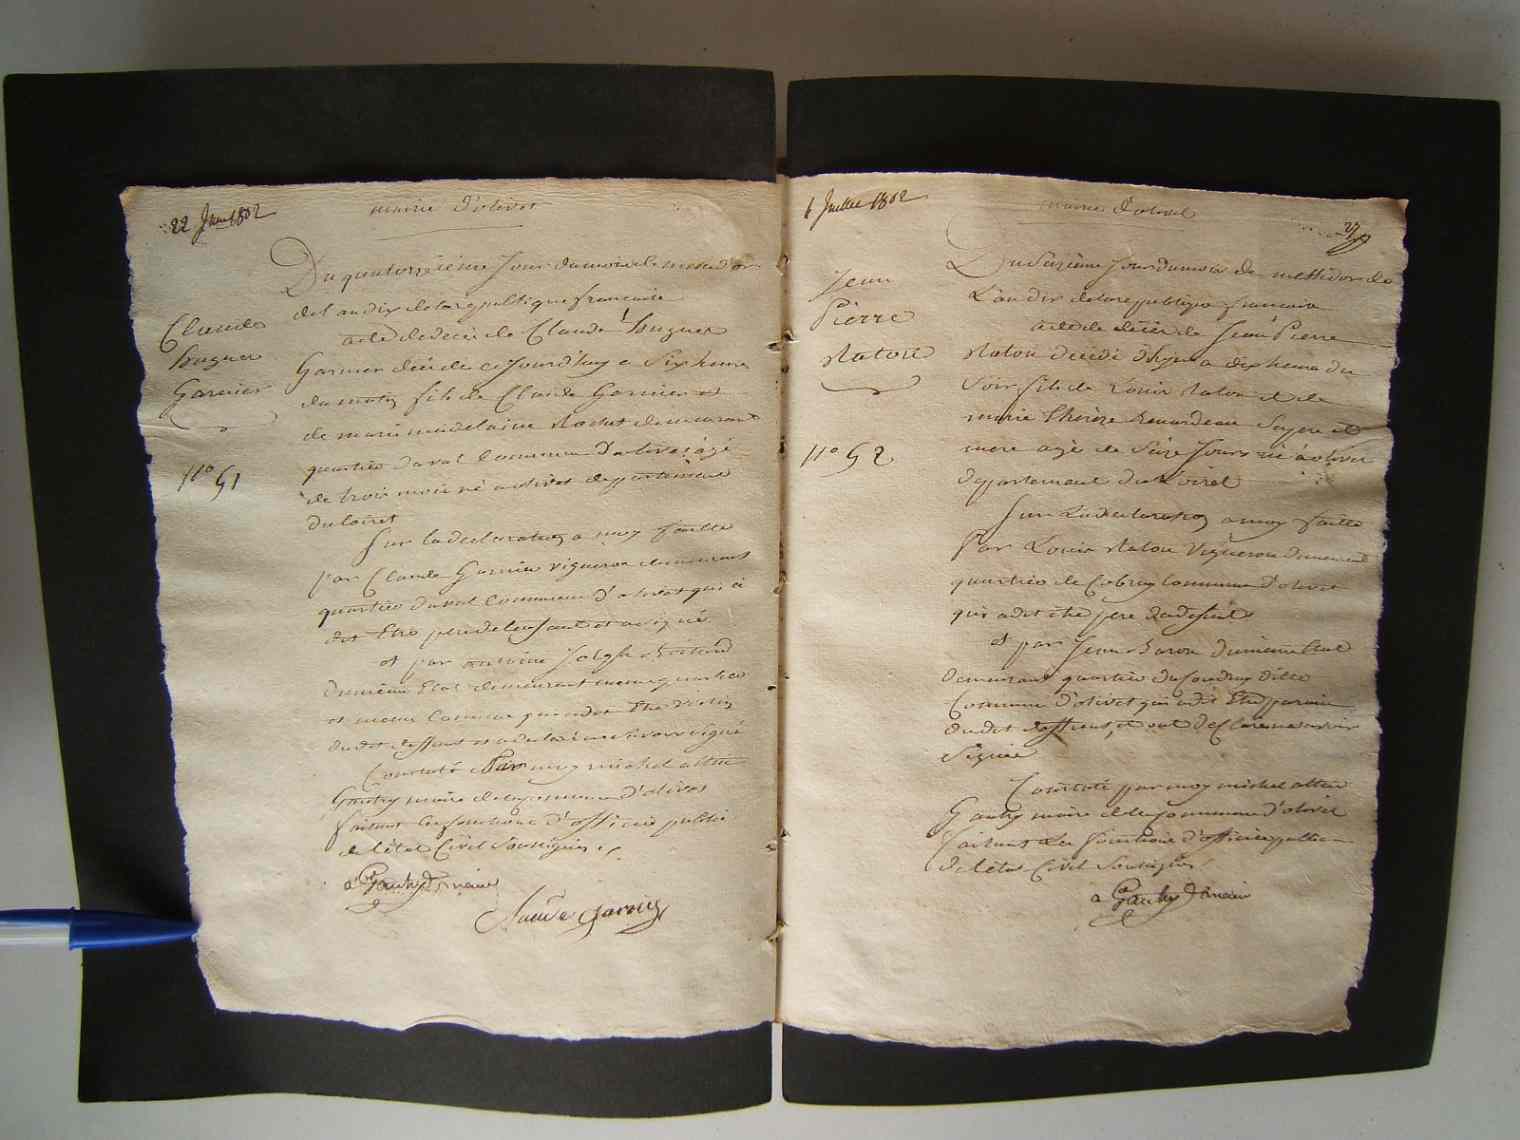 22 Juin 1802
mairie d'olivet
Claude
hugues
Garnier
n° 51
Du quatorzieme jour du mois de messidor
de l'an dix de la republique francaise
acte de deces de Claude hugues
Garnier décédé ce jourd'huy a six heures
du matin fils de Claude Garnier et
de marie madelaine Rochet demeurant
quartier daval Commune d'olivet agé
de trois mois né a olivet departement
du loiret
Sur la declaration a moy faitte
par Claude Garnier vigneron demeurant
quartier daval Commune d'olivet qui a
dit Etre pere de lenfant et a signé
et par antoine Joseph
du meme Etat demeurant meme quartier
et meme Commune qui a dit Etre
du dit deffunt et a declaré ne savoir signé
Constaté Par moy michel
Gauthy maire de la commune d'olivet
faisant les fonctions d'officier public
de l'état Civil Soussigné
Gauthy maire
Claude Garnier
Juillet 1802
mairie d'olivet
27
Jean
Pierre
Ratoir
n° 52
Du Sizième Jour du mois de messidor de
L'an dix de la republique francaise
acte de décès de Jean Pierre
décédé d'hyer a dix heures du
Soir fils de Louis et de
marie thérèze Renardeau Ses pere et
mere agé de Seize Jours né a olivet
departement du Loiret
Sur La declaration a moy faitte
Par Louis Vigneron demeurant
quartier de Commune d'olivet
qui a dit être pere du defunt
et par Jean Baron du meme Etat
demeurant quartier du ditte
Commune d'olivet qui a dit Etre parain
du dit deffunt, et ont declaré ne savoir
Signé
Constaté par moy michel
Gauthy maire de la commune d'olivet
faisant Les fonctions d'officier public
de l'état Civil Soussigné
Gauthy maire